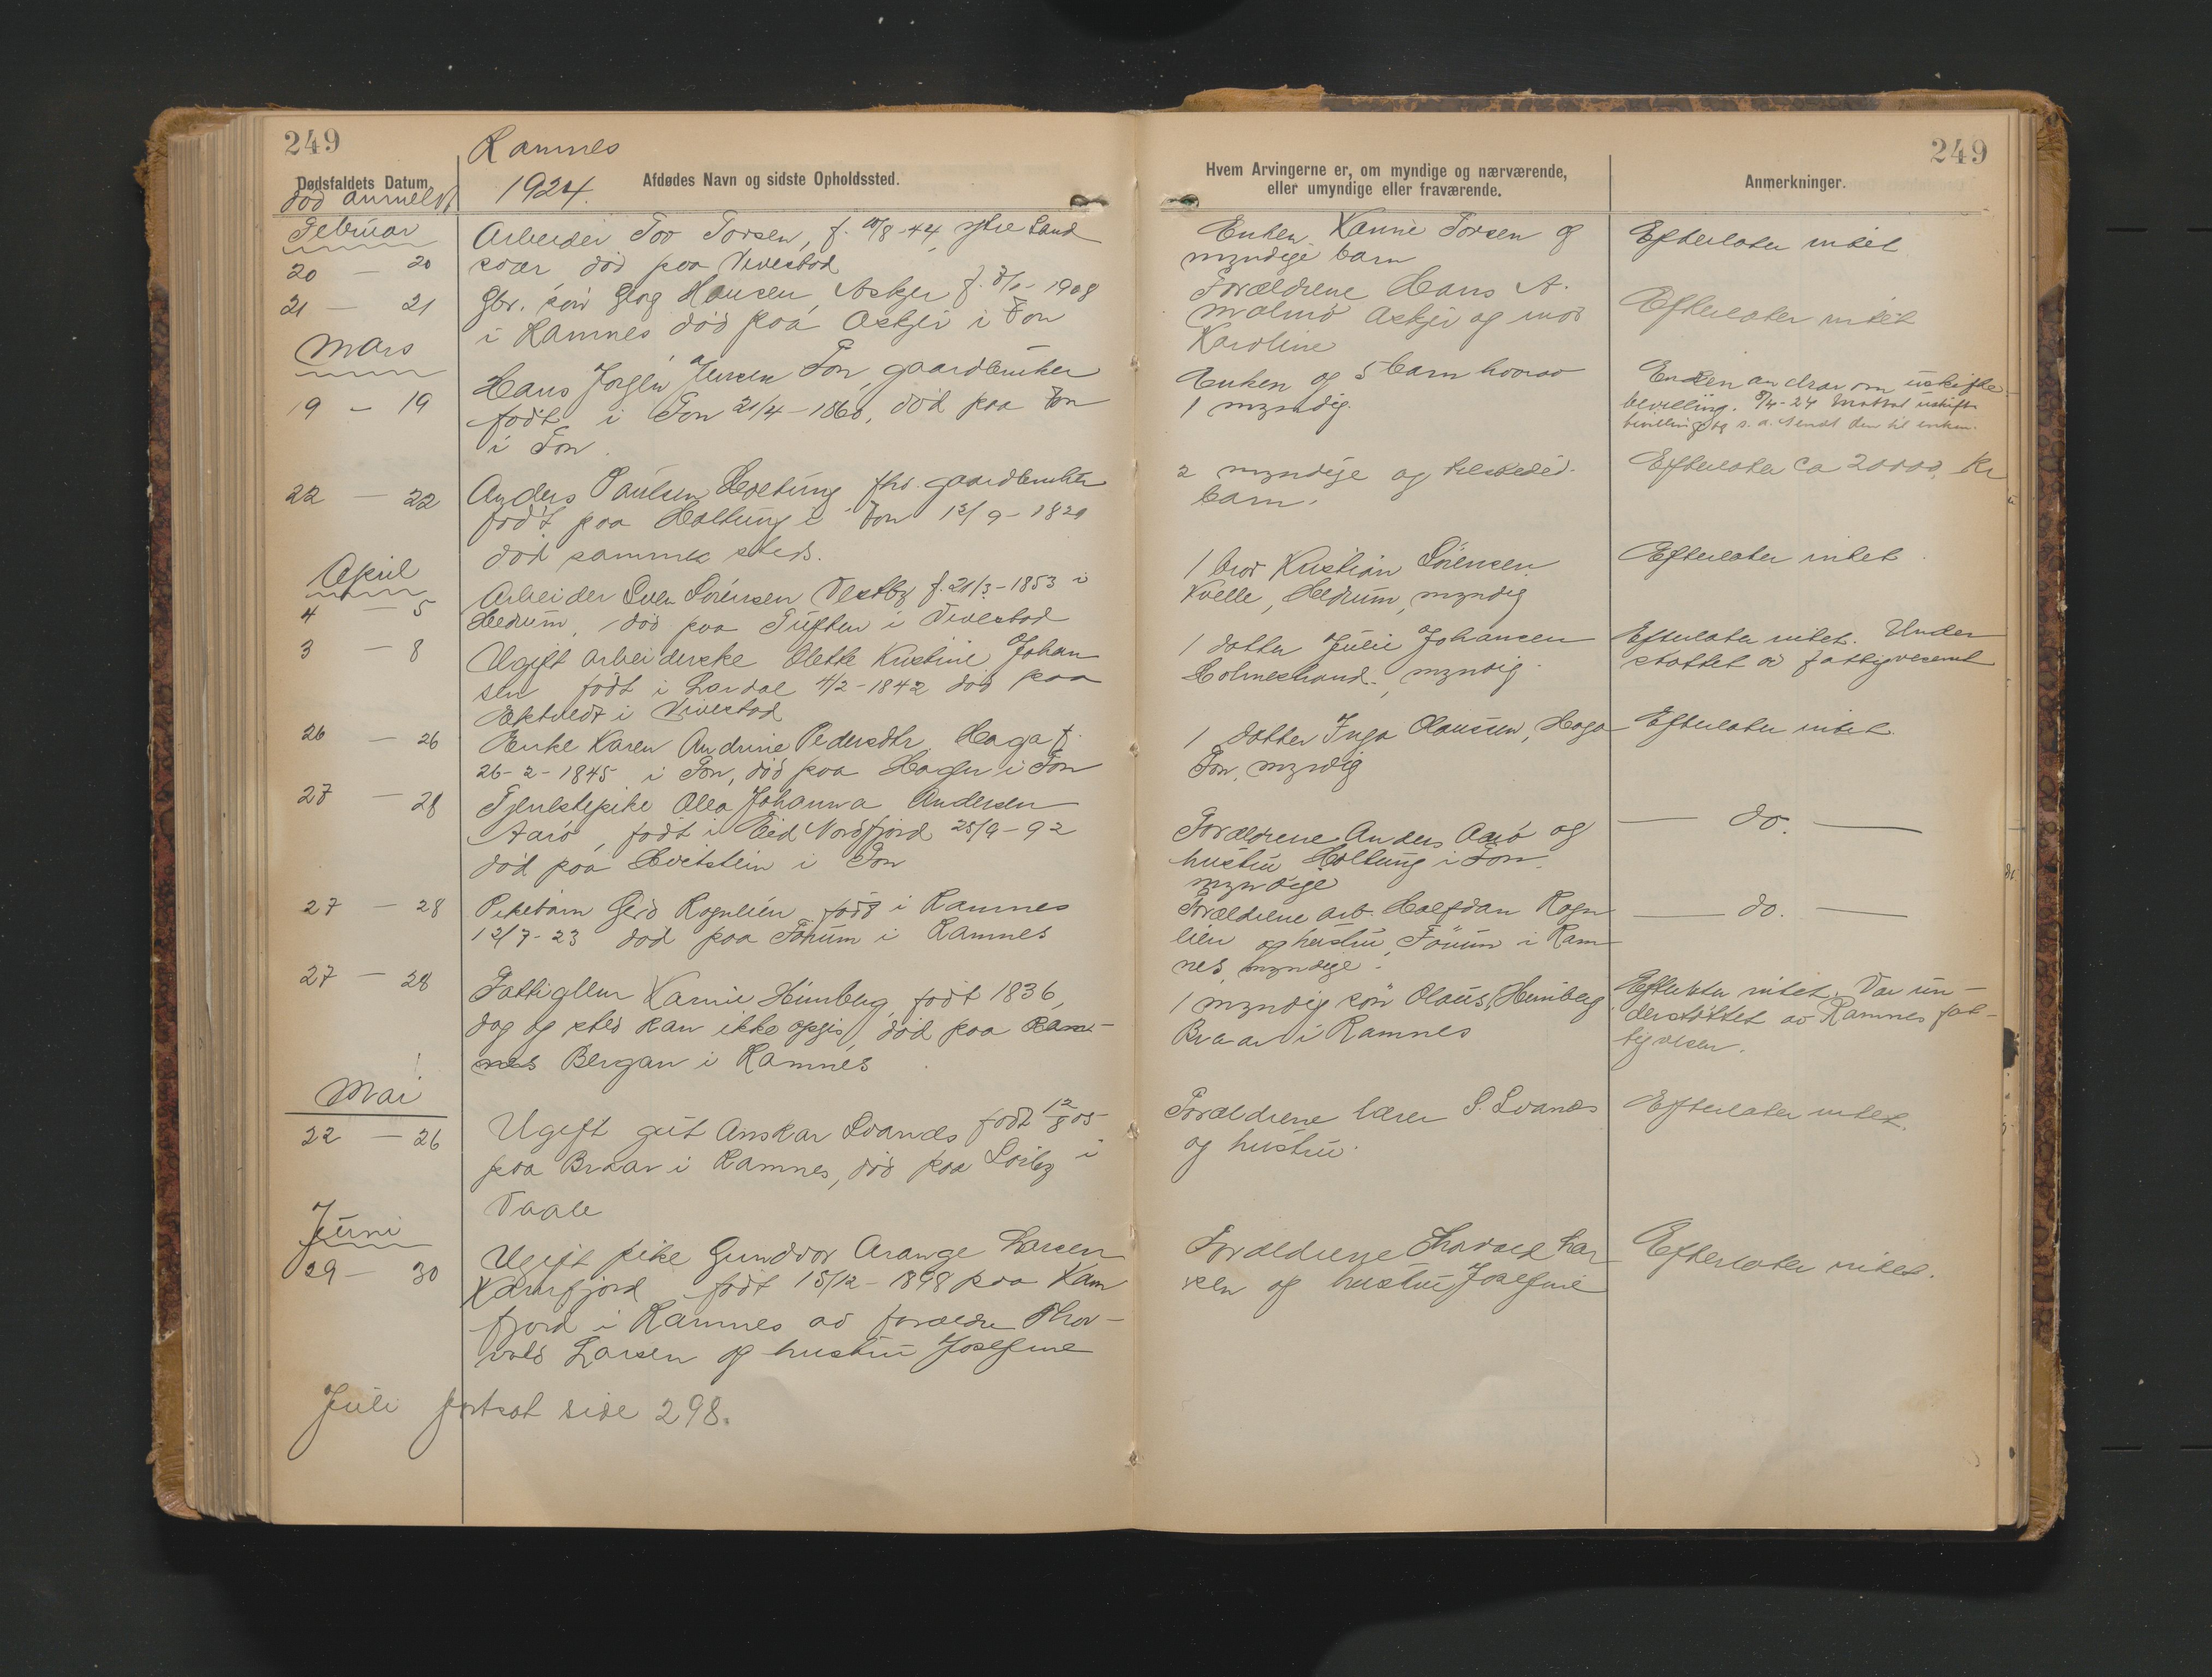 249
Ramnes
Dødsfaldets Datum
død anmeldt
1924.
Afdødes Navn og sidste Opholdssted.
Februar
20 — 20
Arbeider Tov Torsen, f. 10/8-44, ytre Sand
svær død paa Vivestad
21 — 21
Gbr. søn Georg Hansen, Askjer f. 1908
i Ramnes død paa Askjer i Fon
Mars
19 — 19
Hans Jørgen Jensen Fon, gaardbruker
født i Fon 21/4-1860, død paa Fon
i Fon.
22 — 22
Anders Paulsen Holtung fhv. gaardbruker
født paa Holtung i Fon 12/9-1829
død samme steds.
April
4 — 5
Arbeider Sven Sørensen Vestby f. 21/3-1853 i
Hedrum, død paa Tuften i Vivestad
3 — 8
Ugift arbeiderske Olette Kristine Johan
sen født i Lardal 4/2-1842 død paa
i Vivestad
26 — 26
Enke Karen Andrine Pedersdtr Haga f.
26-2-1845 i Fon, død paa Hagen i Fon
27 — 28
Tjenestepike Olea Johanna Andersen
Aarø, født i Eid Nordfjord 25/9-92
død paa Hvitstein i Fon
27 — 28
Pikebarn Gerd Rognlien født i Ramnes
12/7-23 død paa Fohum i Ramnes
27 — 28
Fattiglem Karnie Himberg, født 1836,
dag og sted kan ikke opgis, død paa Ram-
nes Bergan i Ramnes
Mai
22 — 26
Ugift gut Anskar Svands født 12/8 05
paa Braar i Ramnes, død paa Sørby i
Vaale
Juni
29 — 30
Ugift pike Gundvor Arange Larsen
Kamfjord født 15/12-1898 paa Kam
fjord i Ramnes av forældre Thor-
vald Larsen og hustru Josefine
Juli fortsat side 298.
249
Hvem Arvingerne er, om myndige og nærværende,
eller umyndige eller fraværende.
Anmerkninger.
Enken Karnie Torsen og
myndige barn
Efterlater intet
Forældrene Hans A.
Malmø Askjer og mor
Karoline
Efterlater intet
Enken og 5 barn hvorav
1 myndig.
Enken andrar om uskifte
bevilling. 8/4-24 Mottat uskifte
bevilling og s. d. sendt den til enken.
2 myndige og tilstedev.
barn.
Efterlater ca 20000 Kr
1 bror Kristian Sørensen
Kvelle, Hedrum, myndig
Efterlater intet
1 datter Julie Johansen
Holmestrand, myndig.
Efterlater intet. Under
støttet av fattigvesenet
1 datter Inga Olausen, Haga
Fon, myndig
Efterlater intet.
Forældrene Anders Aarø og
hustru Holtung i Fon.
myndige
— do. —
Forældrene arb. Halfdan Rogn
lien og hustru, Fohum i Ram
nes, myndige.
— do. —
1 myndig søn Olaus, Himberg
Braar i Ramnes
Efterlater intet. Var un-
derstøttet av Ramnes fat-
tigvesen.
Forældrene lærer S. Svands
og hustru.
Efterlater intet.
Forældrene Thorvald Lar
sen og hustru Josefine
Efterlater intet.